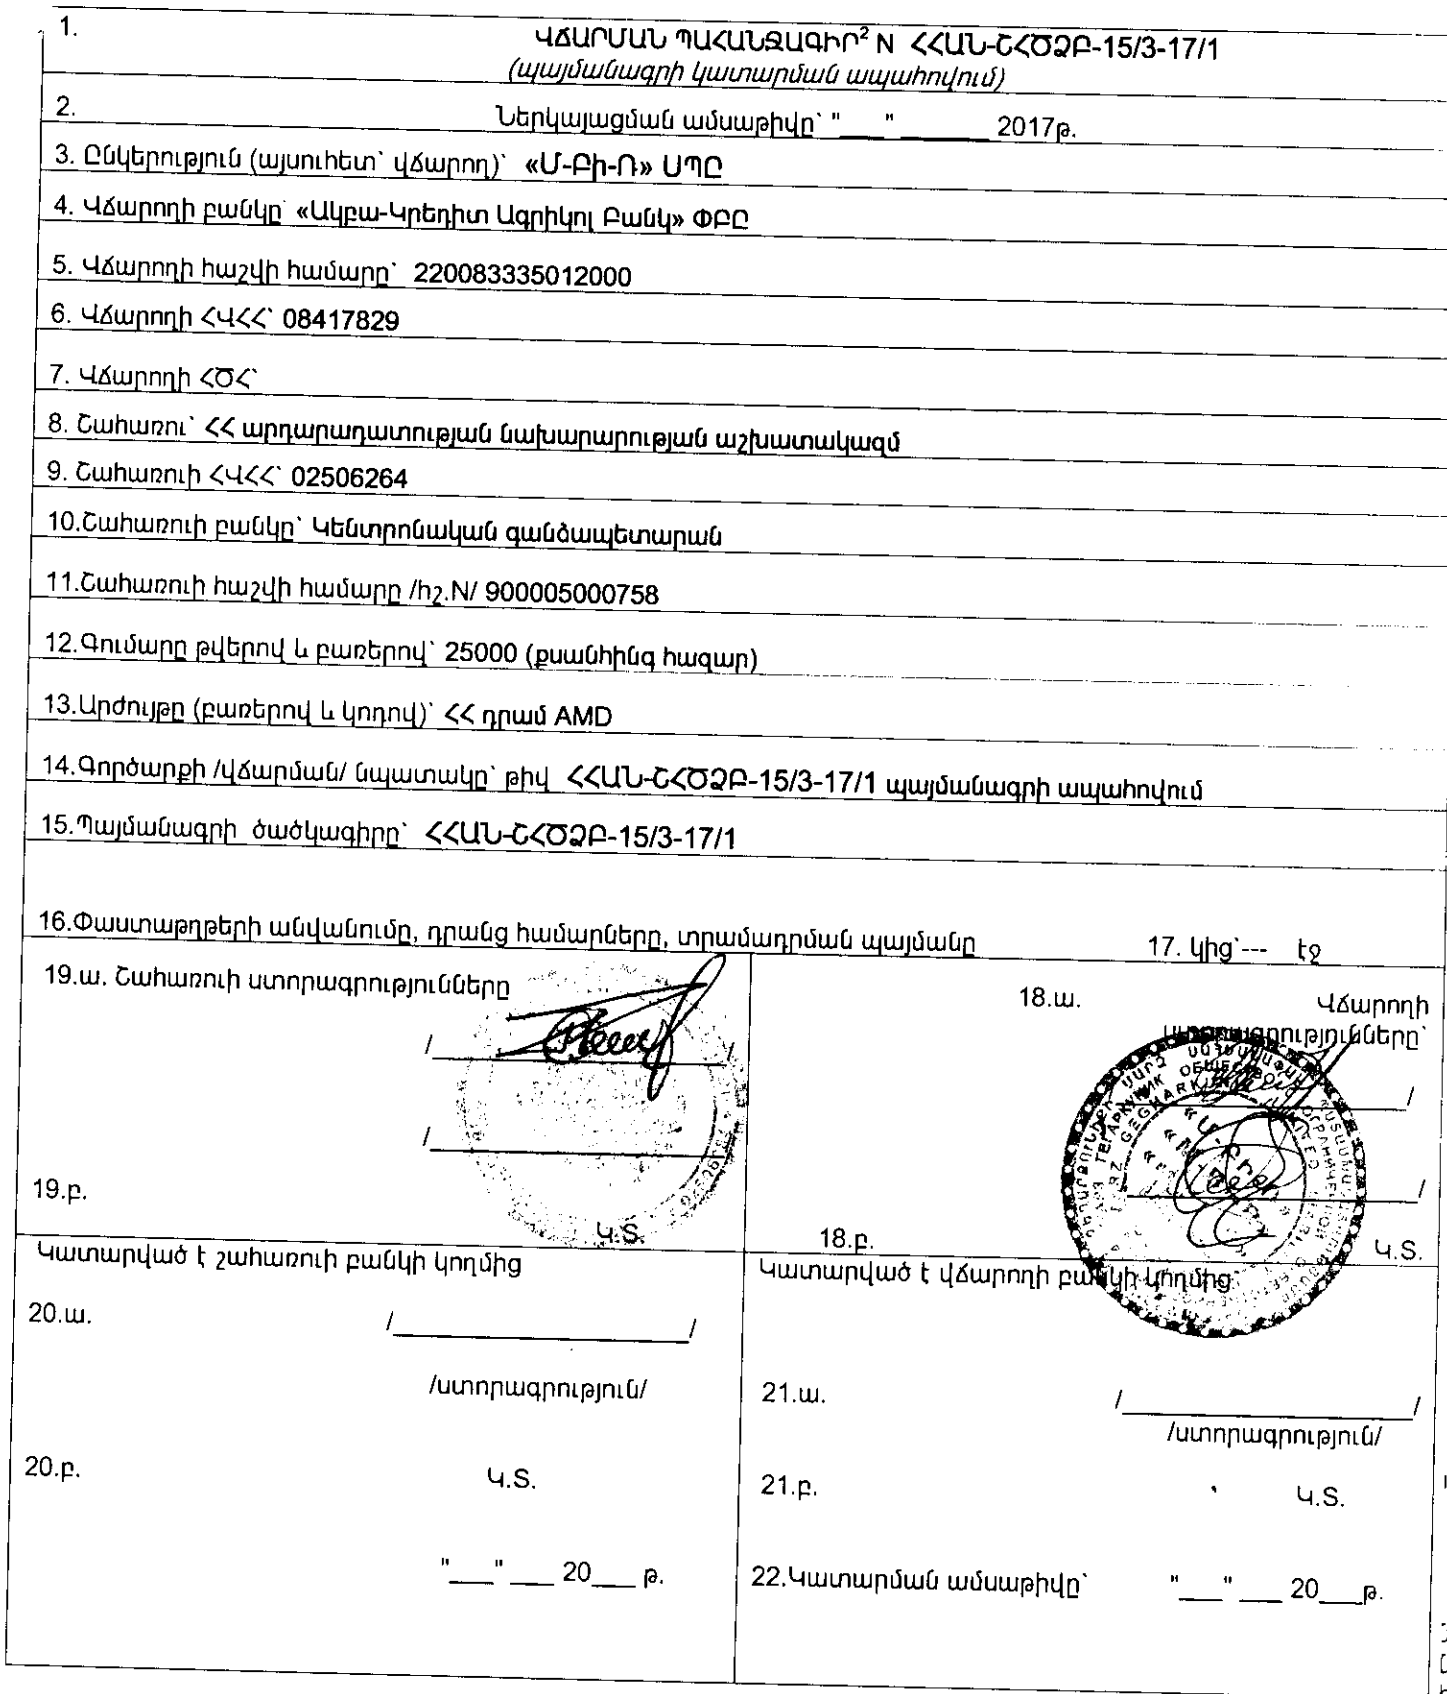 1.
ՎՃԱՐՄԱՆ ՊԱՀԱՆՋԱԳԻՐ² N ՀՀԱՆ-ՇՀԾՁԲ-15/3-17/1
(պայմանագրի կատարման ապահովում)
2.
Ներկայացման ամսաթիվը՝ "___" ______ 2017թ.
3. Ընկերություն (այսուհետ՝ վճարող)՝ «Մ-Բի-Ռ» ՍՊԸ
4. Վճարողի բանկը՝ «Ակբա-Կրեդիտ Ագրիկոլ Բանկ» ՓԲԸ
5. Վճարողի հաշվի համարը՝ 220083335012000
6. Վճարողի ՀՎՀՀ՝ 08417829
7. Վճարողի ՀԾՀ՝
8. Շահառու՝ ՀՀ արդարադատության նախարարության աշխատակազմ
9. Շահառուի ՀՎՀՀ՝ 02506264
10.Շահառուի բանկը՝ Կենտրոնական գանձապետարան
11.Շահառուի հաշվի համարը /հշ.N/ 900005000758
12.Գումարը թվերով և բառերով՝ 25000 (քսանհինգ հազար)
13.Արժույթը (բառերով և կոդով)՝ ՀՀ դրամ AMD
14.Գործարքի /վճարման/ նպատակը՝ թիվ ՀՀԱՆ-ՇՀԾՁԲ-15/3-17/1 պայմանագրի ապահովում
15.Պայմանագրի ծածկագիրը՝ ՀՀԱՆ-ՇՀԾՁԲ-15/3-17/1
16.Փաստաթղթերի անվանումը, դրանց համարները, տրամադրման պայմանը 17. կից՝--- էջ
19.ա. Շահառուի ստորագրությունները
/__________/
/__________/
19.բ.
Կ.Տ.
18.ա. Վճարողի
ստորագրությունները՝
/__________/
/__________/
18.բ. Կ.Տ.
Կատարված է շահառուի բանկի կողմից
20.ա. /__________/
/ստորագրություն/
20.բ. Կ.Տ.
"___" ___ 20___ թ.
Կատարված է վճարողի բանկի կողմից
21.ա. /__________/
/ստորագրություն/
21.բ. Կ.Տ.
22.Կատարման ամսաթիվը՝ "___" ___ 20___թ.